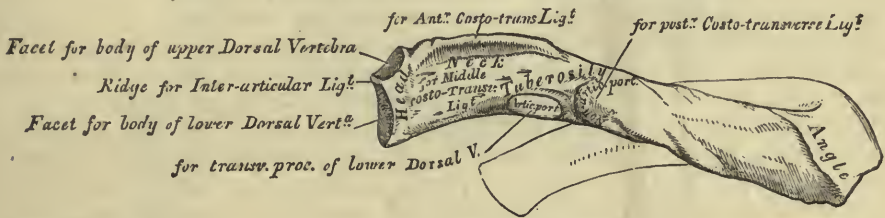 for Antr. Costo-trans Ligt.
for postr. Costo-transverse Ligt.
Facet for body of upper Dorsal Vertebra
Ridge for Inter-articular Ligt.
Facet for body of lower Dorsal Verta.
for transv. proc. of lower Dorsal V.
Head
Neck
for Middle
Costo-Transv.
Ligt.
Tuberosity
Artic. port.
Angle